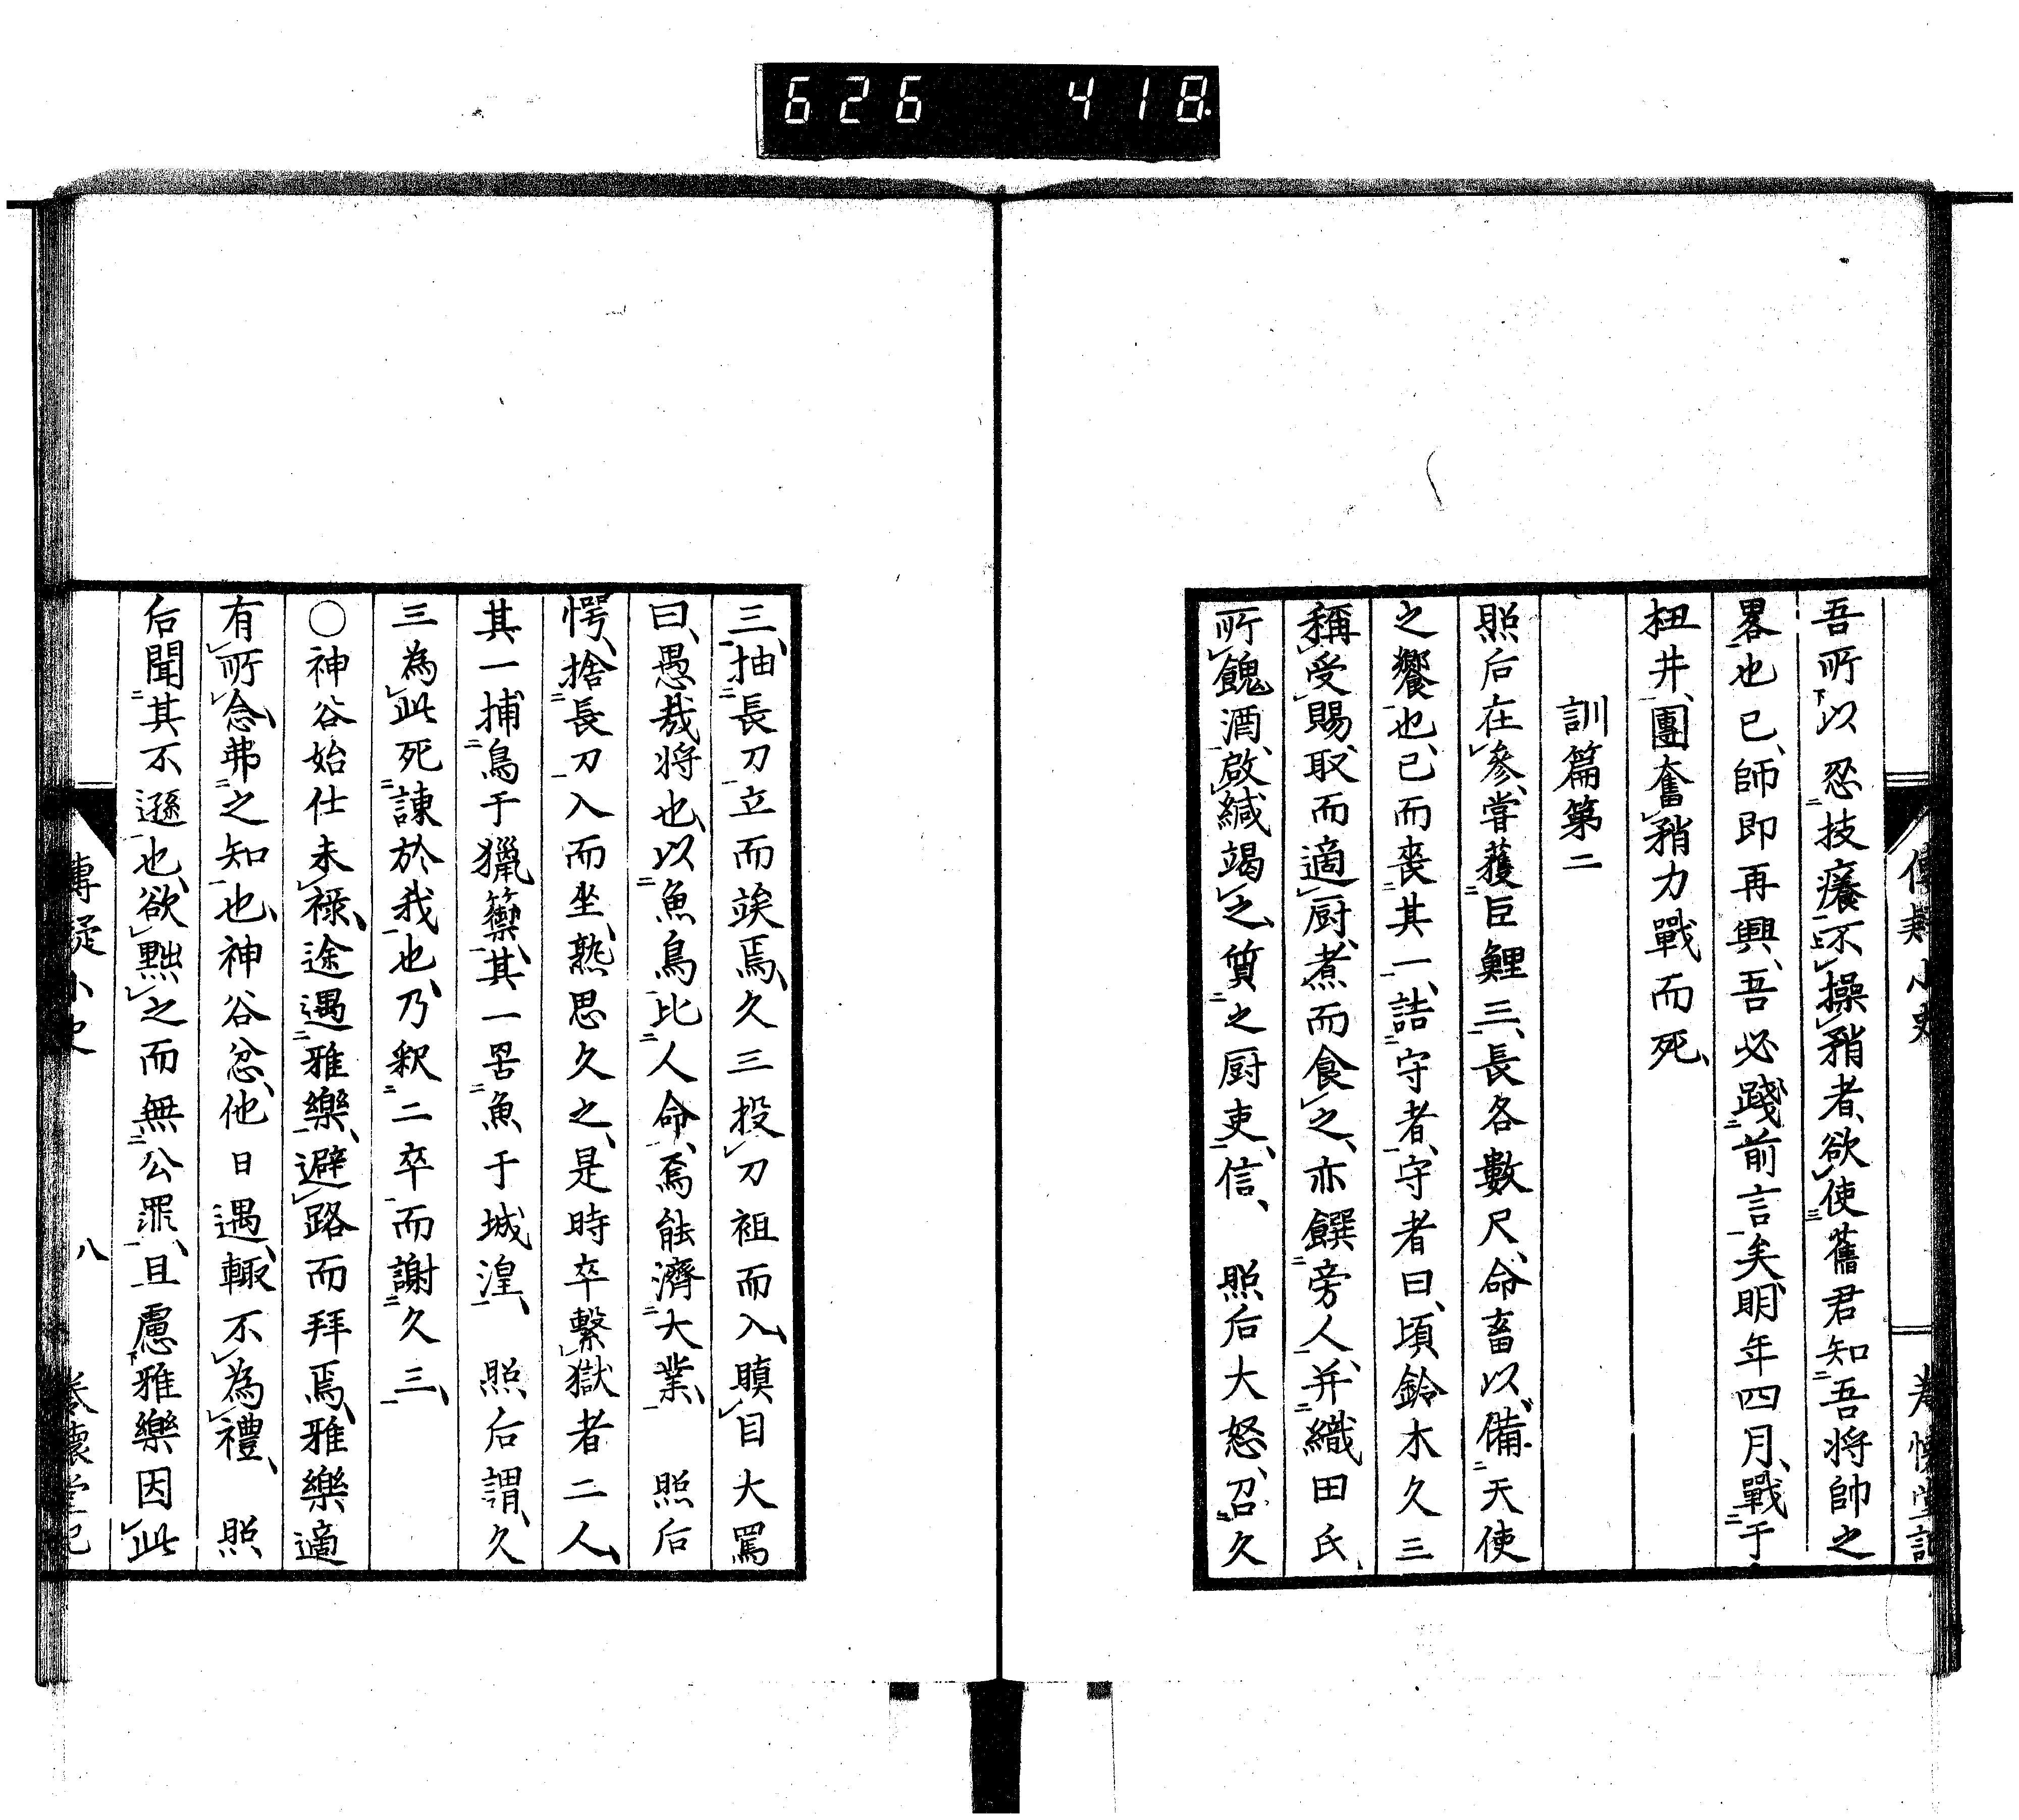 626 418
吾所以忍技癢不操矟者、欲使舊君知吾將帥之
畧也已、師即再興、吾必踐前言矣、明年四月、戰于
杻井、團奮矟力戰而死、
訓篇第二
照后在參、嘗獲巨鯉三、長各數尺、命畜以備天使
之饗也、已而喪其一、詰守者、守者曰、頃鈴木久三
稱受賜、取而適厨、煮而食之、亦饌旁人、并織田氏、
所餽酒、啟緘竭之、質之厨吏、信、照后大怒、召久
三、抽長刀立而竢焉、久三投刀袒而入、瞋目大罵
曰、愚哉將也、以魚鳥比人命、焉能濟大業、照后
愕、捨長刀入而坐、熟思久之、是時卒繫獄者二人、
其一捕鳥于獵籞、其一罟魚于城湟、照后謂、久
三為此死諫於我也、乃釈二卒而謝久三、
○神谷始仕未祿、途遇雅樂、避路而拜焉、雅樂適
有所念、弗之知也、神谷忿、他日遇、輙不為禮、照
后聞其不遜也、欲黜之而無公罪、且慮雅樂因此
八